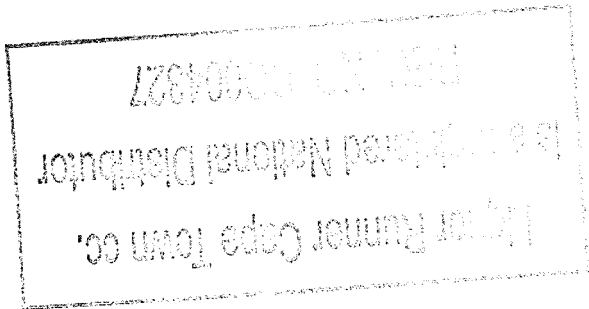 Liquor Runner Cape Town cc.
is a registered National Distributor